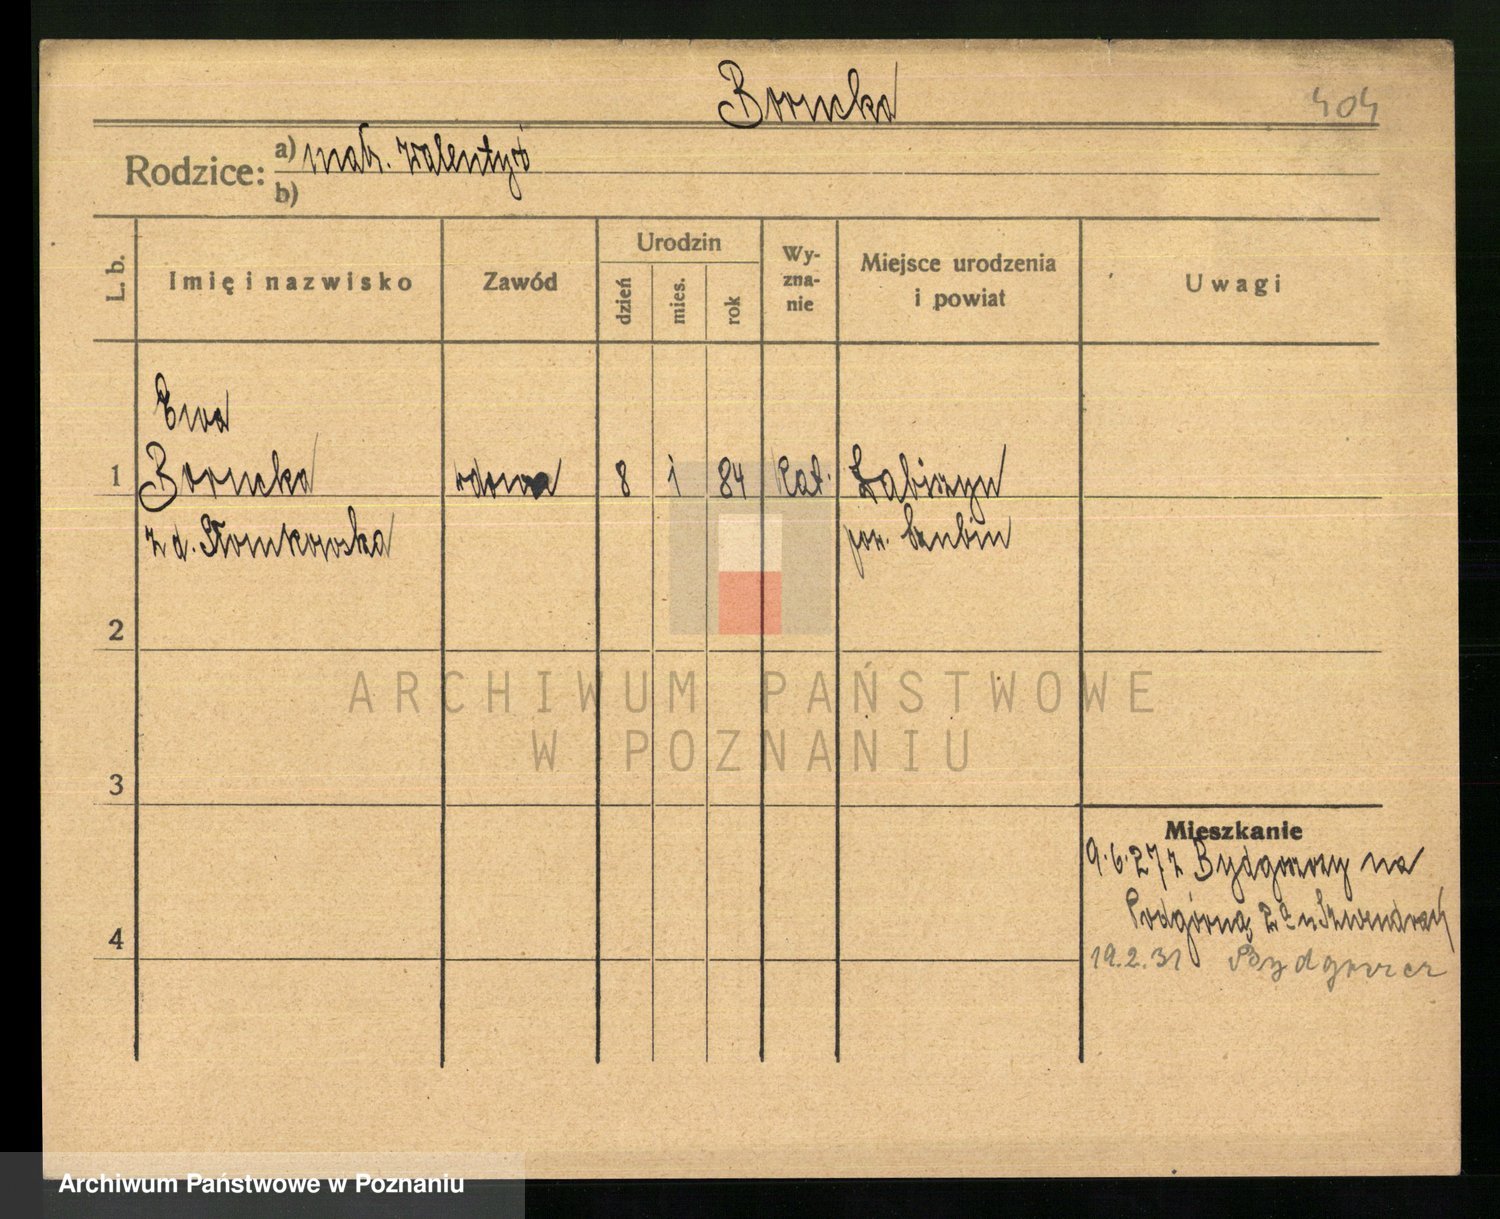 Borucka
404
Rodzice: a) małż. Walentyś
b)
L. b.
Imię i nazwisko
Zawód
Urodzin
dzień
mies.
rok
Wy-
zna-
nie
Miejsce urodzenia
i powiat
Uwagi
Ewa
1 Borucka wdowa 8 1 84 kat. Łabiszyn
z d. Słomkowska pow. Szubin
2
ARCHIWUM PAŃSTWOWE
W POZNANIU
3
Mieszkanie
9.6.27 z Bydgoszczy na
Podgórną 2a u
4
19.2.31 Bydgoszcz
Archiwum Państwowe w Poznaniu